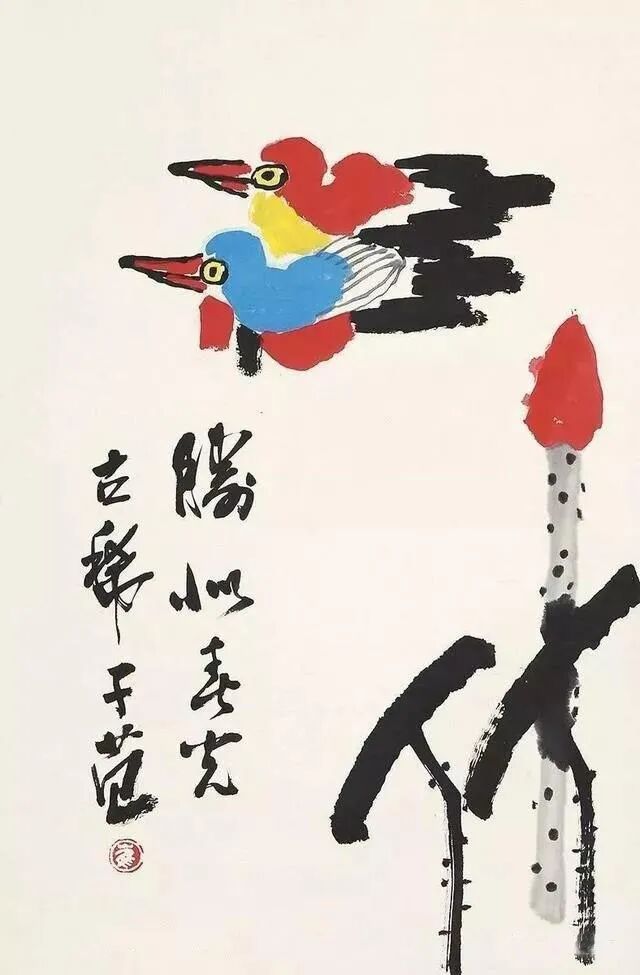 勝似春光
古稀子范